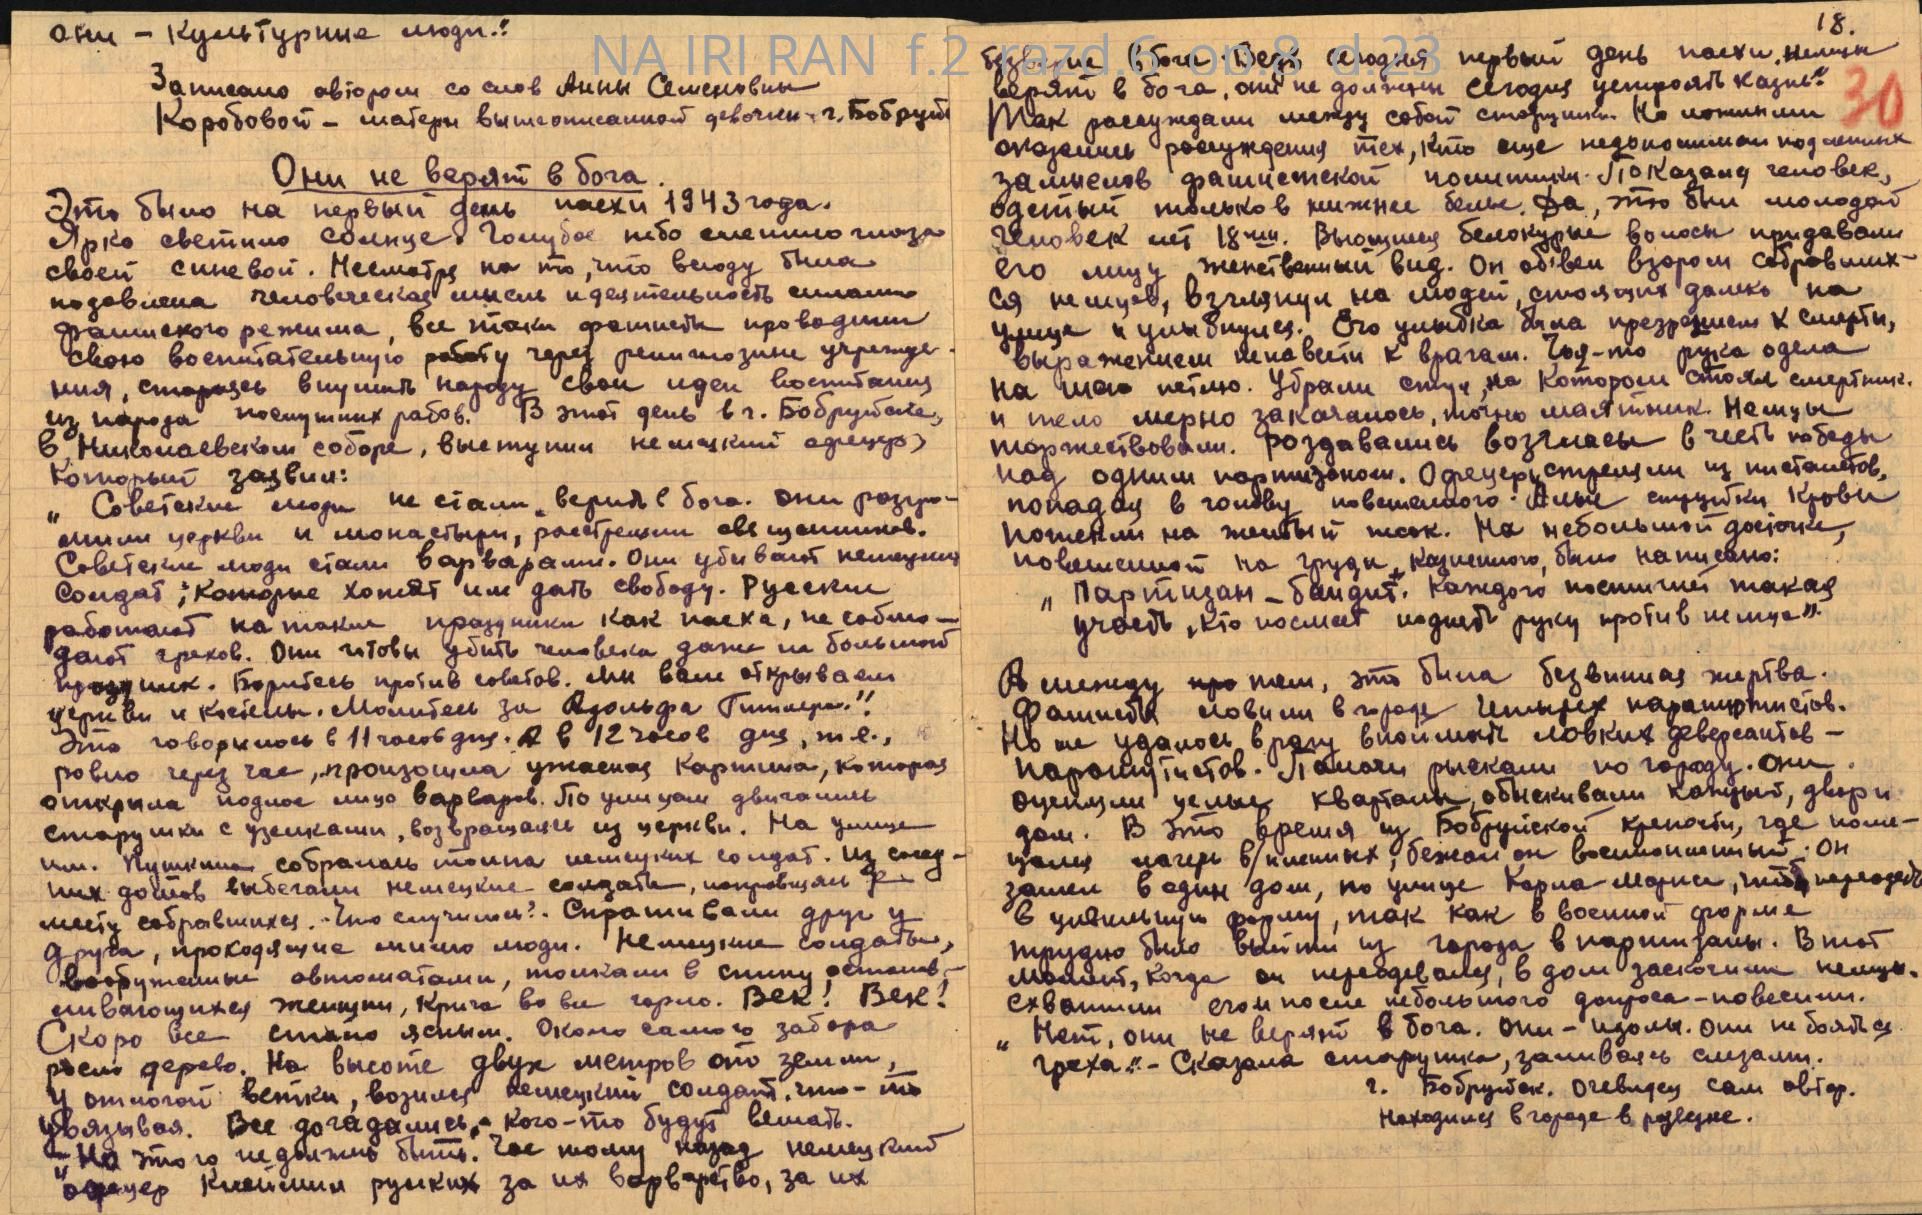 они – культурные люди."
Записано автором со слов Анны Семеновны
Коробовой – матери вышеописанной девочки. г. Бобруйс
Они не верят в бога.
Это было на первый день пасхи 1943 года.
Ярко светило солнце. Голубое небо слепило глаза
своей синевой. Несмотря на то, что всюду была
подавлена человеческая мысль и деятельность силами
фашиского режима, все таки фашисты проводили
свою воспитательную работу через религиозные учрежде-
ния, стараясь внушить народу свои идеи воспитания
из народа послушных рабов. В этот день в г. Бобруйске,
в Николаевском соборе, выступил немецкий офицер,
который заявил:
„Советские люди не стали верить в бога. Они разгро-
мили церкви и монастыри, расстреляли священников.
Советские люди стали варварами. Они убивают немецких
солдат, которые хотят им дать свободу. Русские
работают на такие праздники как пасха, не соблю-
дают грехов. Они готовы убить человека даже на большой
праздник. Боритесь против советов. Мы вам открываем
церкви и костелы. Молитесь за Адольфа Гитлера."
Это говорилось в 11 часов дня. А в 12 часов дня, т.е.,
ровно через час, произошла ужасная картина, которая
открыла подлое лицо варваров. По улицам двигались
старушки с узелками, возвращаясь из церкви. На улице
им. Пушкина собралась толпа немецких солдат. Из сосед-
них домов выбегали немецкие солдаты, направляясь к
месту собравшихся. – Что случилось?. Спрашивали друг у
друга, проходящие мимо люди. Немецкие солдаты,
вооруженные автоматами, толкали в спину останав-
ливающихся женщин, крича во все горло. Век! Век!
Скоро все стало ясным. Около самого забора
росло дерево. На высоте двух метров от земли,
у отлогой ветки, возился немецкий солдат, что-то
увязывая. Все догадались, – кого-то будут вешать.
– "Но этого не должно быть. Час тому назад немецкий
офицер клеймил руских за их варварство, за их
18.
30
безверие в бога. Ведь сегодня первый день пасхи. Немцы
верят в бога, они не должны сегодня устроять казнь."
Так рассуждали между собой старушки. Но ложными
оказались рассуждения тех, кто еще недопонимал подлинных
замыслов фашистской политики. Показался человек,
одетый только в нижнее белье. Да, это был молодой
человек лет 18ти. Вьющиеся белокурые волосы придавали
его лицу женственный вид. Он обвел взором собравших-
ся немцев, взглянул на людей, стоящих далеко на
улице и улыбнулся. Его улыбка была презрением к смерти,
выражением ненависти к врагам. Чья-то рука одела
на шею петлю. Убрали стул, на котором стоял смертник.
и тело мерно закачалось, точно маятник. Немцы
торжествовали. Роздавались возгласы в честь победы
над одним партизаном. Офецеры стреляли из пистолетов,
попадая в голову повешенного. Алые струйки крови
потекли на желтый песок. На небольшой досточке,
повешенной на груди казненного, было написано:
„Партизан – бандит". Каждого постигнет такая
участь, кто посмеет поднять руку против немца".
А между про тем, это была безвинная жертва.
Фашисты ловили в городе четырех парашютистов.
Но не удалось врагу споймать ловких деверсантов –
парашютистов. Палачи рыскали по городу. Они
оцепляли целые кварталы, обыскивали каждый, двор и
дом. В это время из Бобруйской крепости, где поме-
щался лагерь в/пленных, бежал он военнопленный. Он
зашел в один дом, по улице Карла-Маркса, чтоб переодеть
в цивильную форму, так как в военной форме
трудно было выйти из города в партизаны. В тот
момент, когда он переодевался, в дом заскочили немцы.
Схватили его и после небольшого допроса – повесили.
„Нет, они не верят в бога. Они – идолы. Они не боятся
греха." – Сказала старушка, заливаясь слезами.
г. Бобруйск. Очевидец сам автор.
Находился в городе в разведке.
NA IRI RAN f.2 razd.6 op.8 d.23